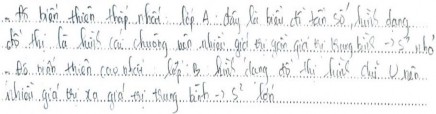 - Độ biến thiên thấp nhất lớp A: đây là biểu đồ tần số hình dạng
đồ thị là hình cái chuông nên nhiều giá trị gần giá trị trung bình → s² nhỏ
- Độ biến thiên cao nhất lớp: B hình dạng đồ thị hình chữ U nên
nhiều giá trị xa giá trị trung bình → s² lớn